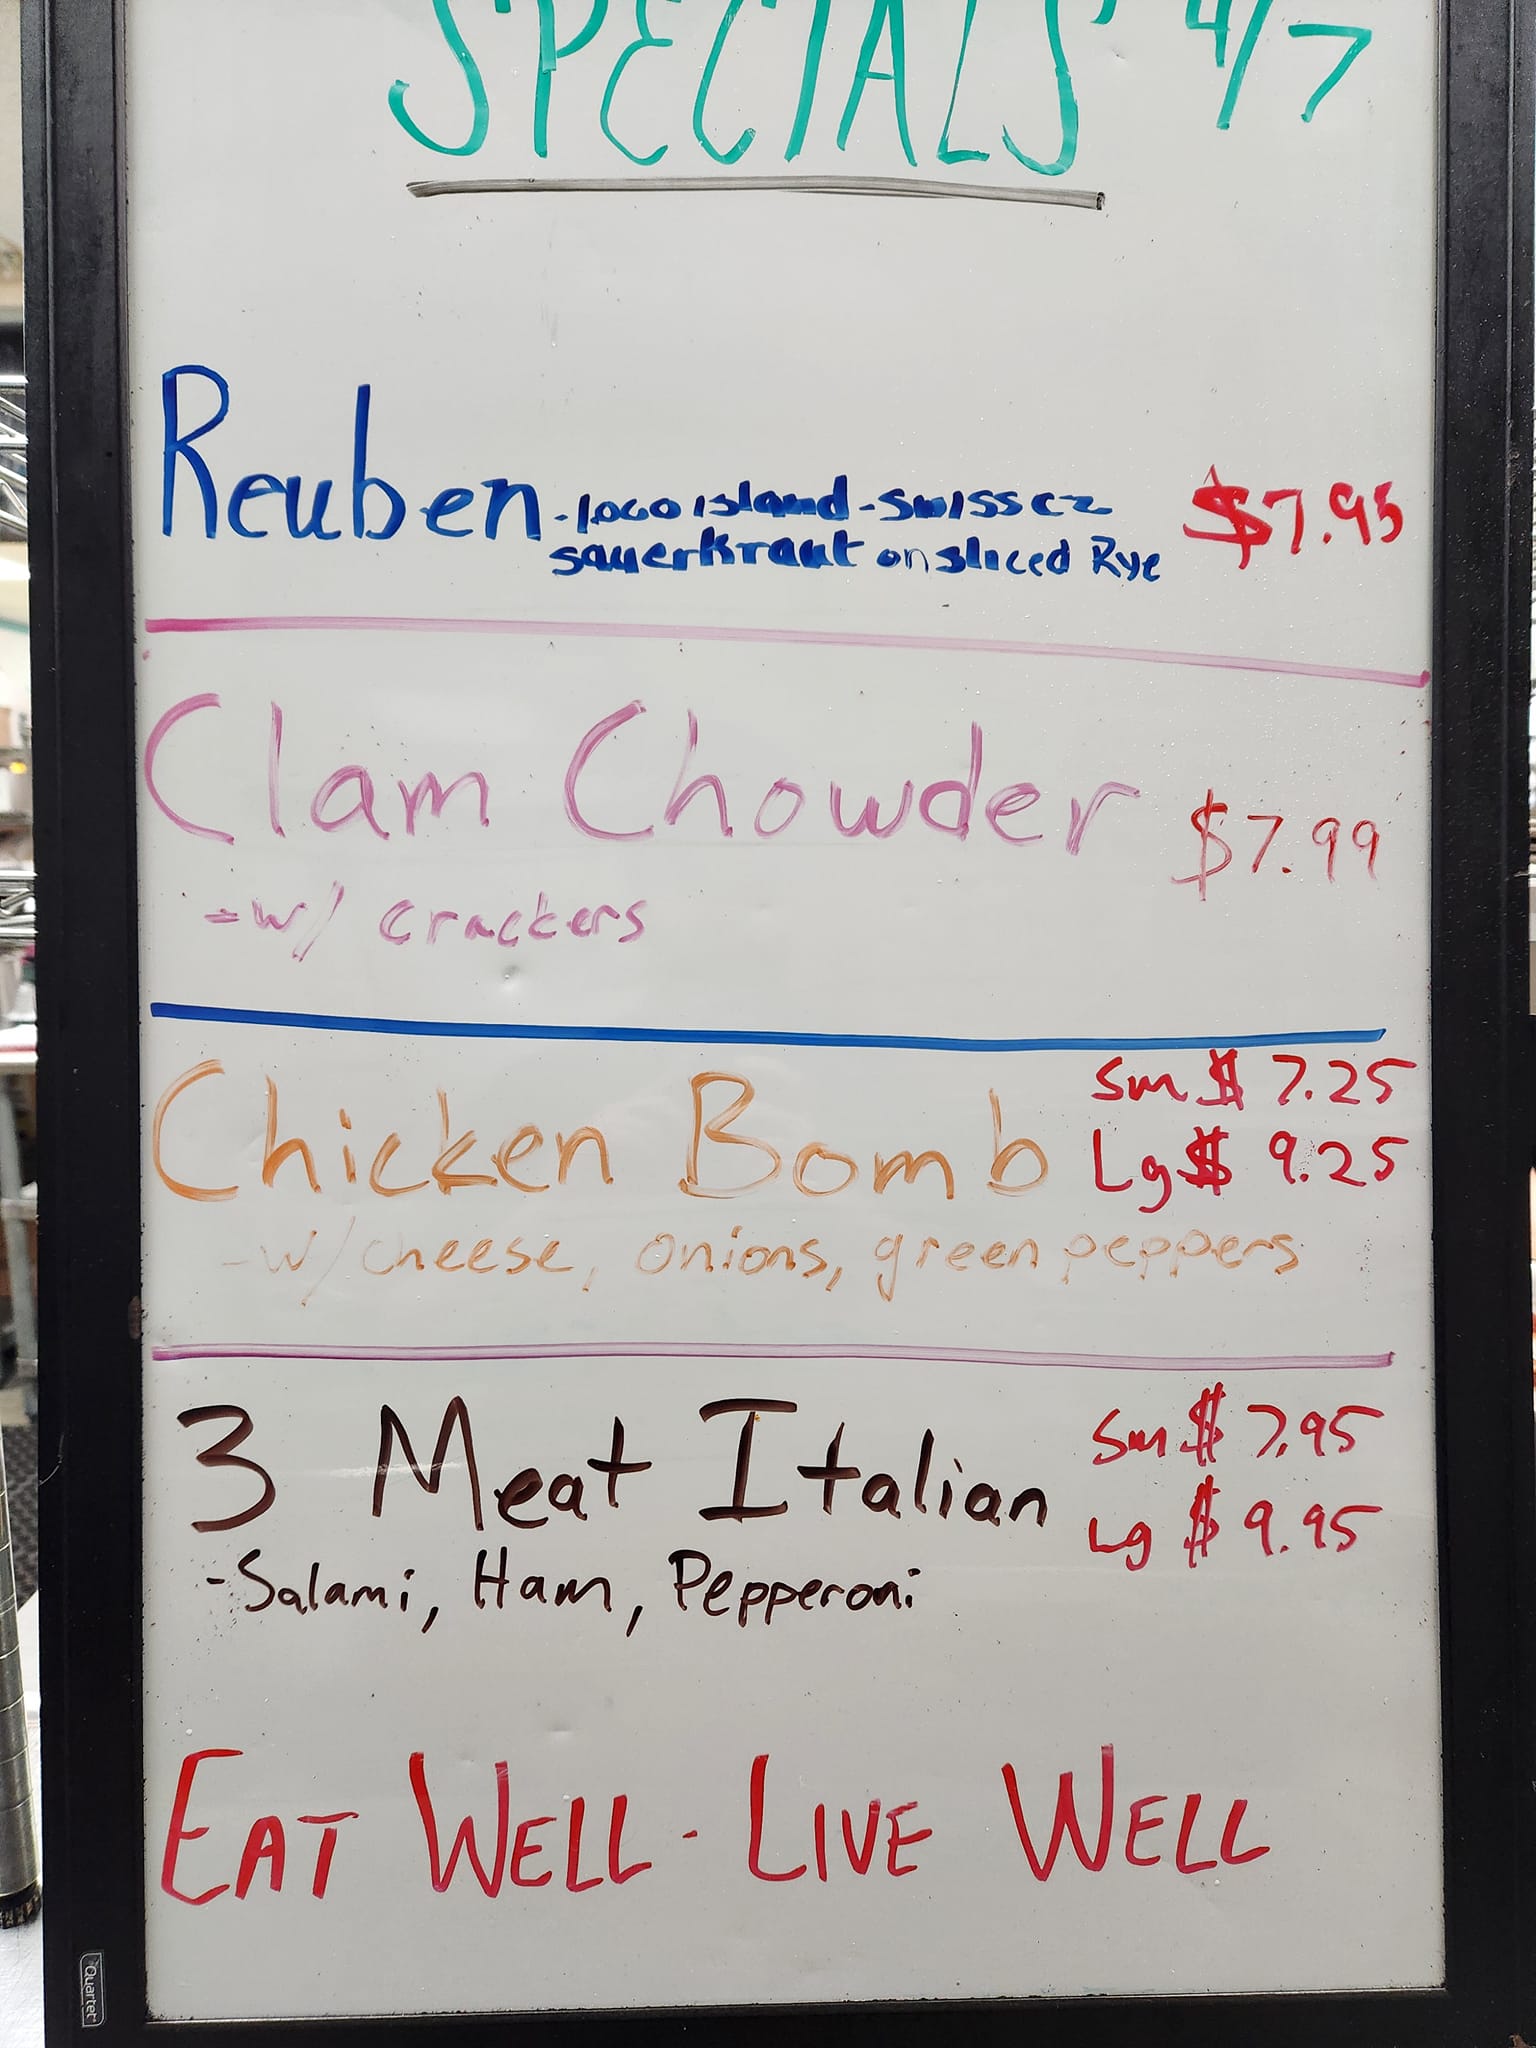 SPECIALS 4/7
Reuben -1000 island - swiss cz $7.95
sauerkraut on sliced Rye
Clam Chowder $7.99
-w/ crackers
Chicken Bomb Sm $7.25
Lg $9.25
-w/cheese, onions, green peppers
3 Meat Italian Sm $7.95
Lg $9.95
-Salami, Ham, Pepperoni
EAT WELL - LIVE WELL
Quartet